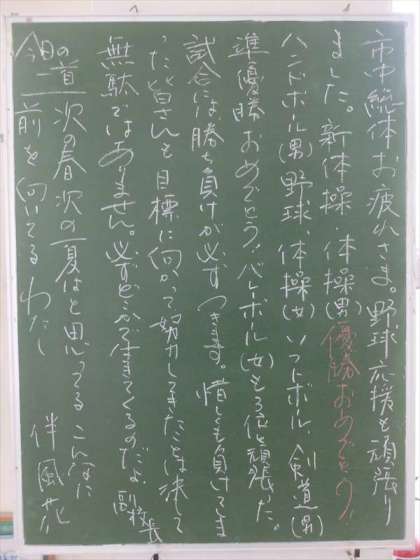 市中総体お疲れさま。野球応援も頑張り
ました。新体操・体操(男)優勝おめでとう!
ハンドボール(男)野球、体操(女)ソフトボール、剣道(男)
準優勝おめでとう!バレーボール(女)も3位と頑張った。
試合には勝ち負けが必ずつきます。惜しくも負けてしま
った皆さんも目標に向かって努力してきたことは決して
無駄ではありません。必ずどこかで生きてくるのだよ。副校長
今日の一首 次の春次の夏はと思ってるこんなに
前を向いてるわたし 伴風花